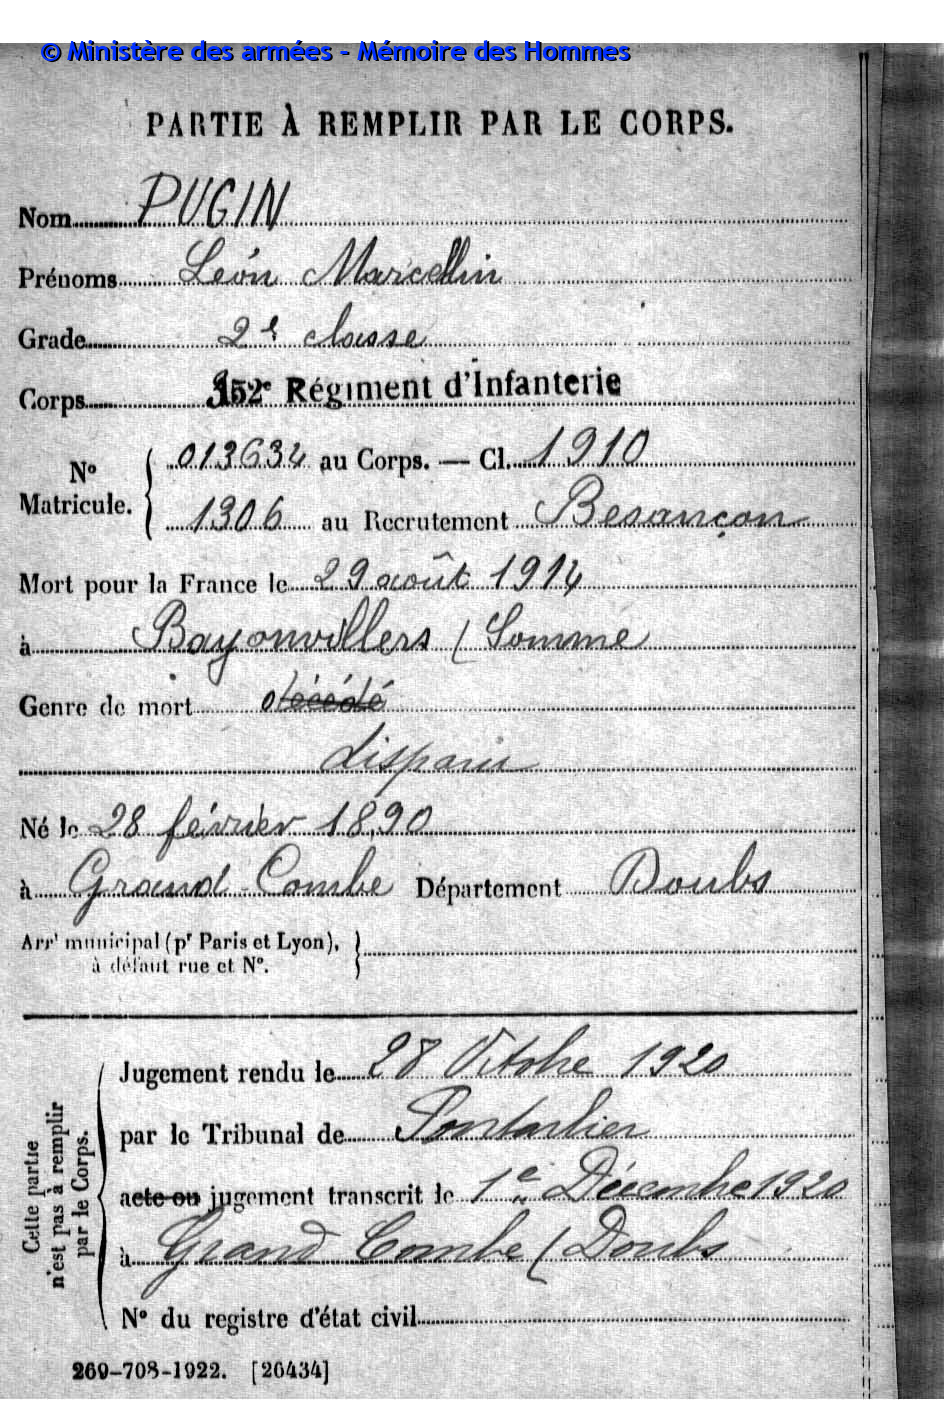 © Ministère des armées - Mémoire des Hommes
PARTIE À REMPLIR PAR LE CORPS.
Nom PUGIN
Prénoms Léon Marcellin
Grade 2e classe
Corps 352e Régiment d'Infanterie
No Matricule. 013634 au Corps. — Cl. 1910
1306 au Recrutement Besançon
Mort pour la France le 29 août 1914
à Bayonvillers (Somme
Genre de mort décédé
disparu
Né le 28 février 1890
à Grand-Combe Département Doubs
Arrt municipal (pr Paris et Lyon),
à défaut rue et No.
Cette partie n'est pas à remplir par le Corps.
Jugement rendu le 28 Octobre 1920
par le Tribunal de Pontarlier
acte ou jugement transcrit le 1er Décembre 1920
à Grand Combe (Doubs
No du registre d'état civil
269-708-1922. [26434]